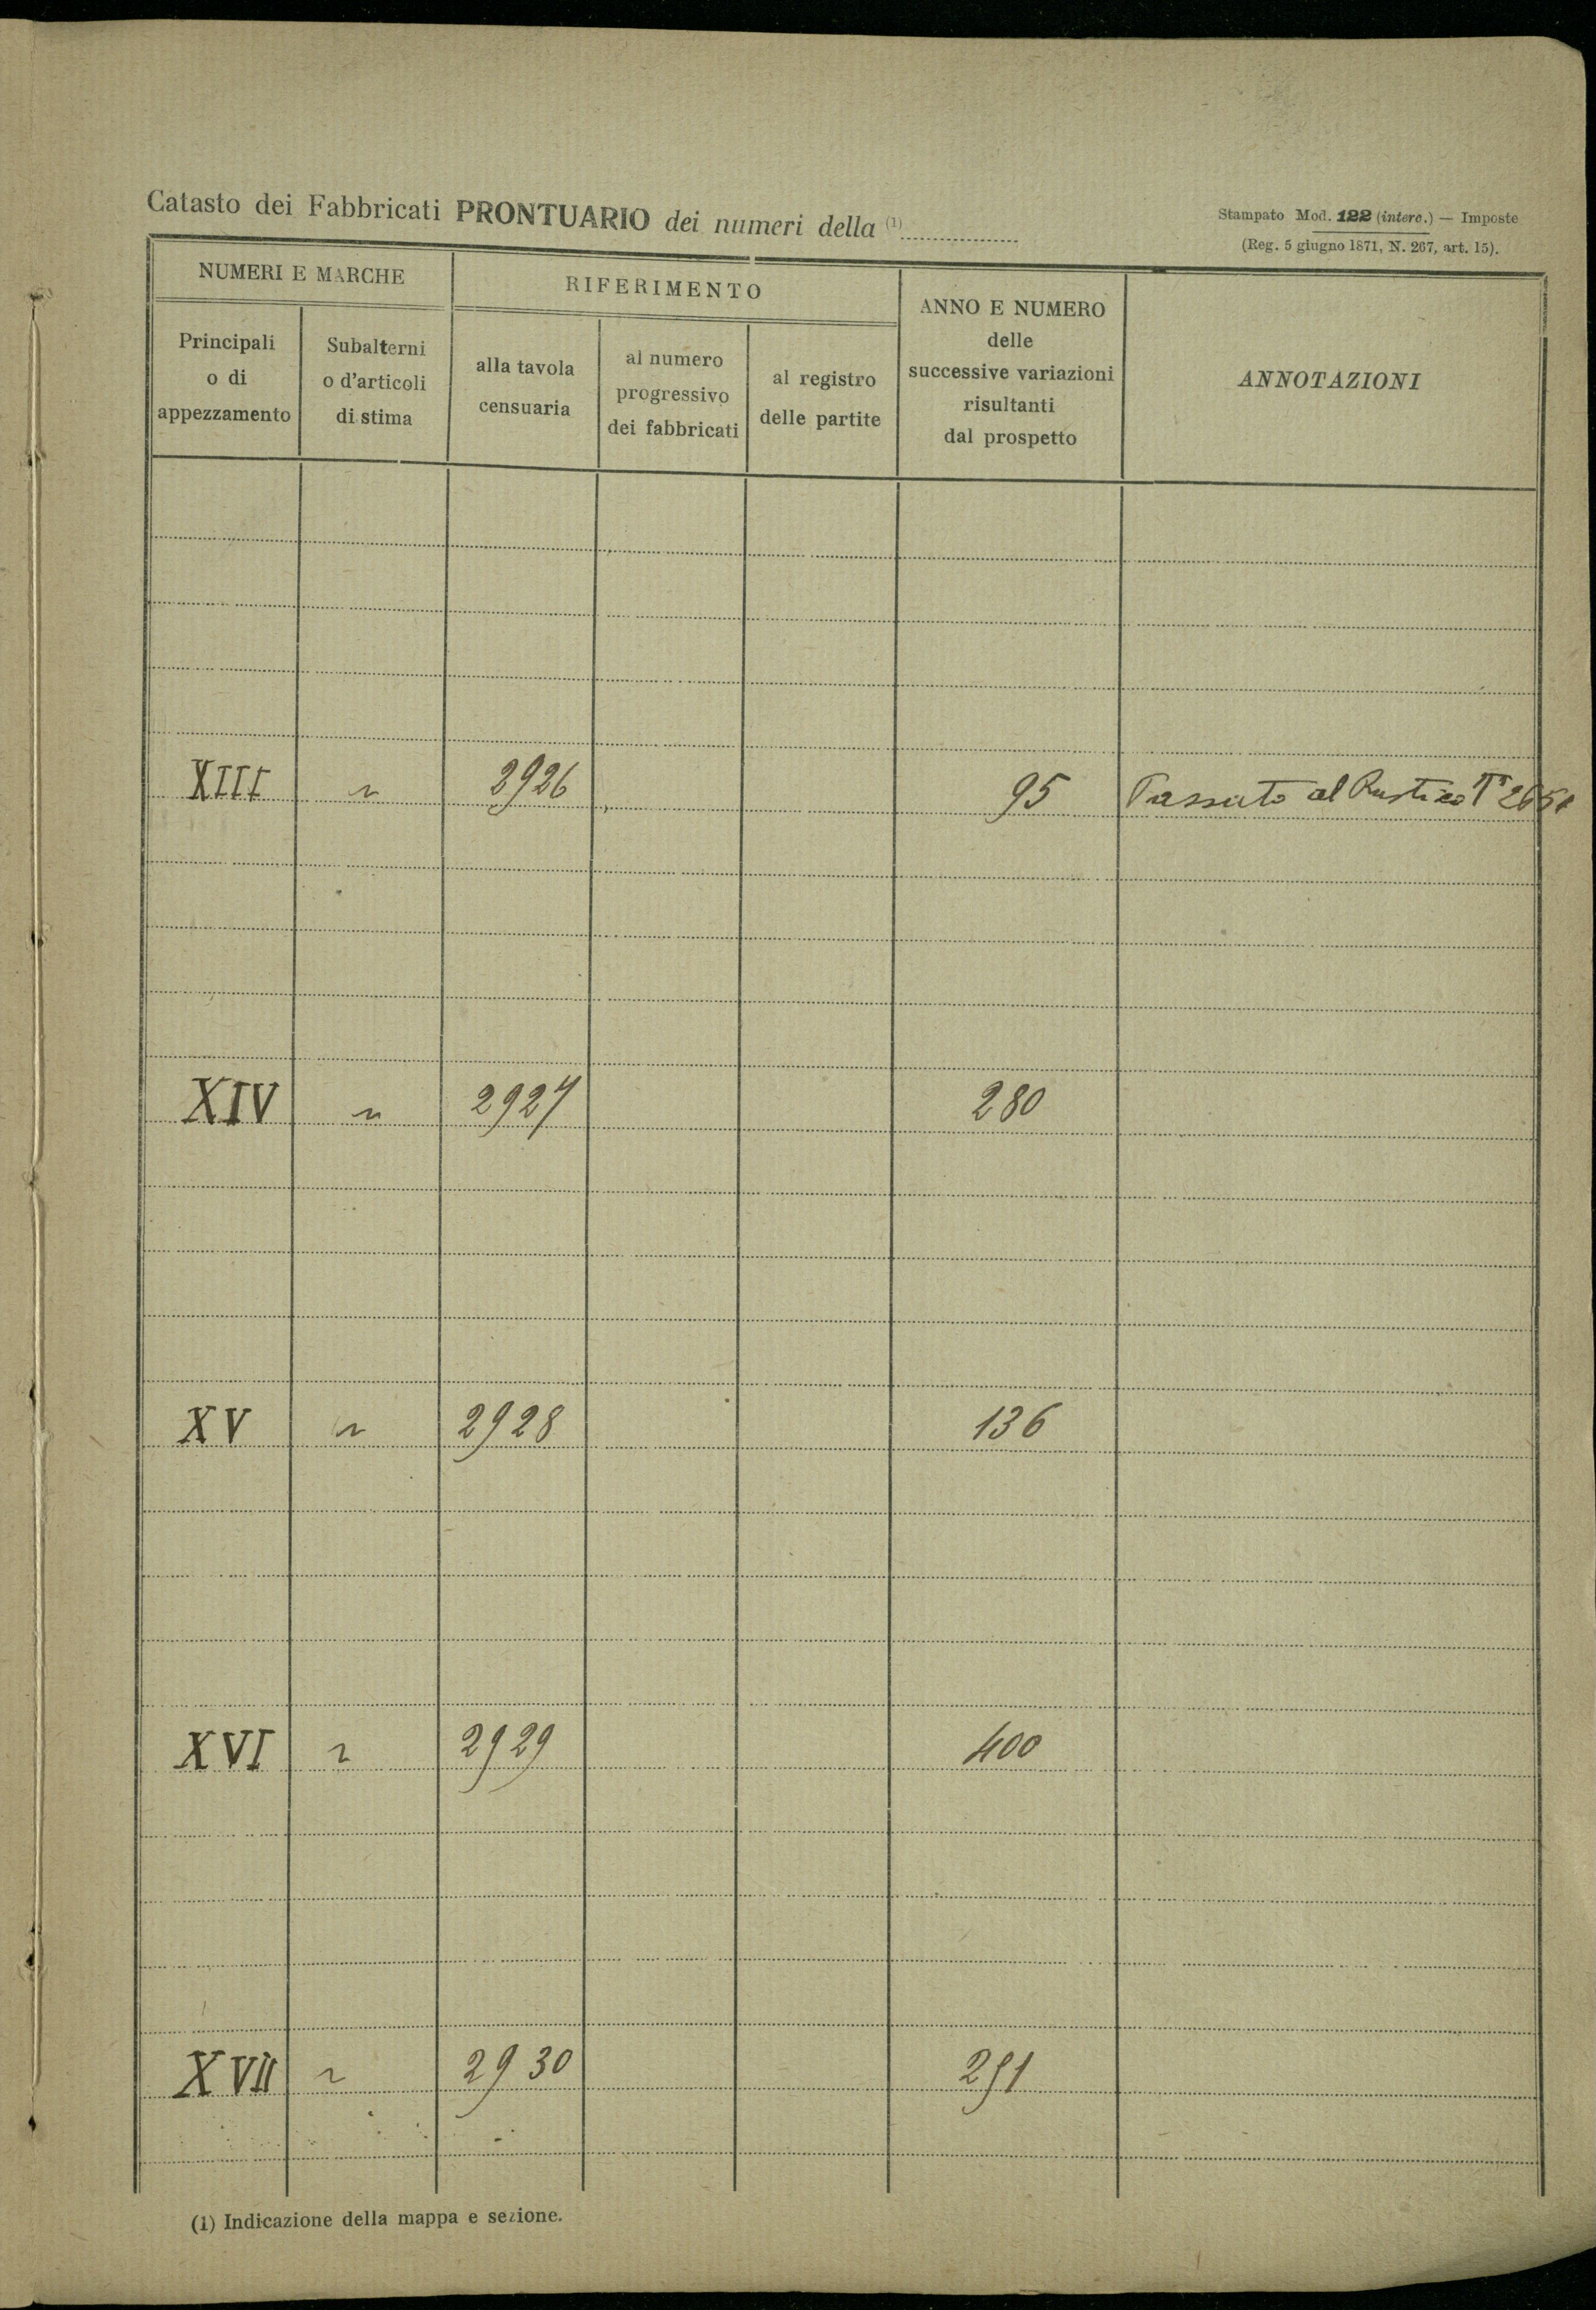 Catasto dei Fabbricati PRONTUARIO dei numeri della (1)
Stampato Mod. 122 (interc.) — Imposte
(Reg. 5 giugno 1871, N. 267, art. 15).
NUMERI E MARCHE
RIFERIMENTO
ANNO E NUMERO
delle
successive variazioni
risultanti
dal prospetto
ANNOTAZIONI
Principali
o di
appezzamento
Subalterni
o d'articoli
di stima
alla tavola
censuaria
al numero
progressivo
dei fabbricati
al registro
delle partite
XIII 2926 95 Passato al Rustico
XIV 2927 280
XV 2928 136
XVI 2929 400
XVII 2930 291
(1) Indicazione della mappa e sezione.